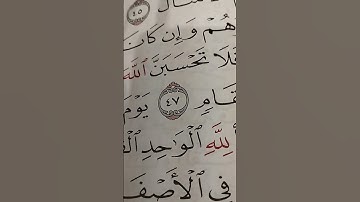 ٤٥
هُمْ وَإِن كَانَ
فَلَا تَحْسَبَنَّ ٱللَّهَ
قَامٍ ٤٧ يَوْمَ
لِلَّهِ ٱلْوَٰحِدِ ٱلْقَ
فِي ٱلْأَصْفَ